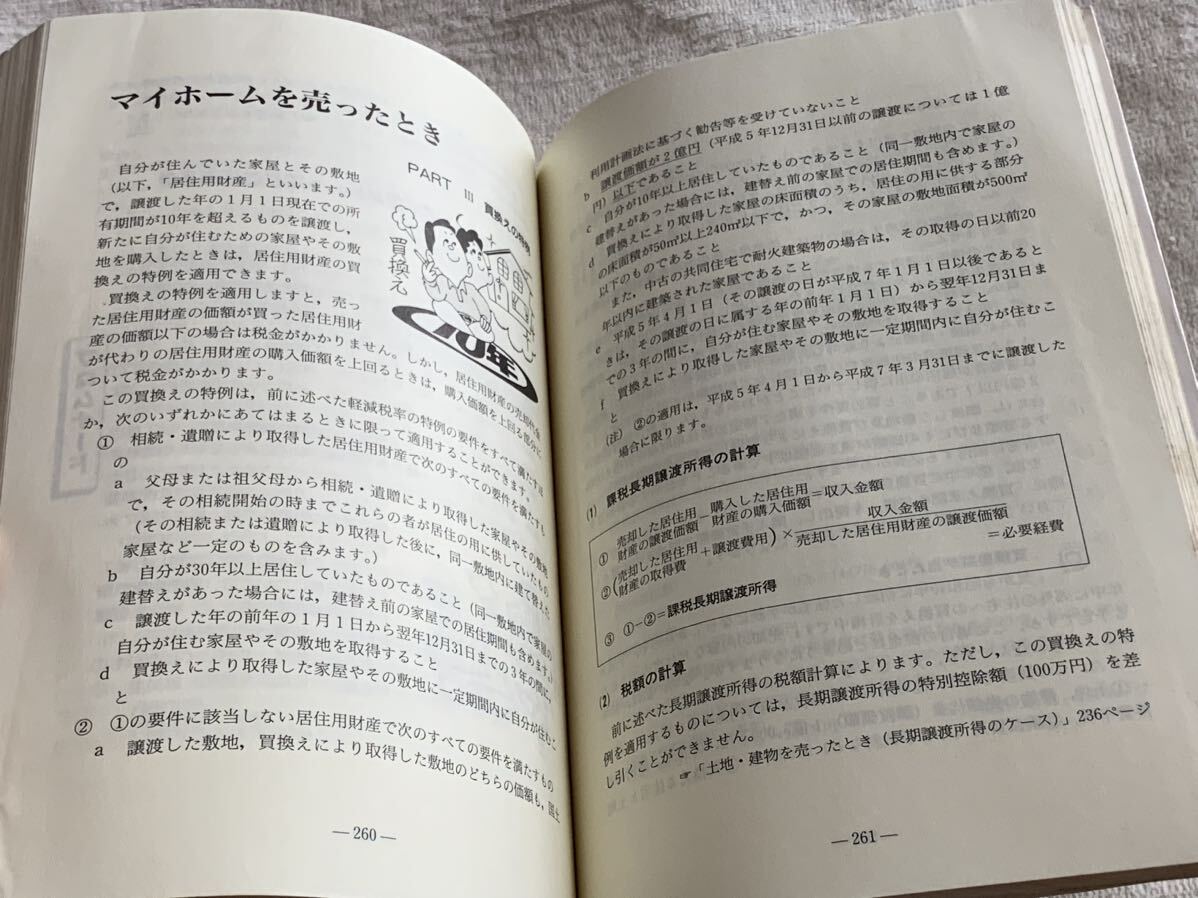 マイホームを売ったとき
PART Ⅲ 買換えの特例
自分が住んでいた家屋とその敷地
(以下,「居住用財産」といいます。)
で,譲渡した年の1月1日現在での所
有期間が10年を超えるものを譲渡し,
新たに自分が住むための家屋やその敷
地を購入したときは,居住用財産の買
換えの特例を適用できます。
買換えの特例を適用しますと,売っ
た居住用財産の価額が買った居住用財
産の価額以下の場合は税金がかかりません。しかし,居住用財産の売却代金
が代わりの居住用財産の購入価額を上回るときは,購入価額を上回る部分に
ついて税金がかかります。
買換え
10年
この買換えの特例は,前に述べた軽減税率の特例の要件をすべて満たすほ
か,次のいずれかにあてはまるときに限って適用することができます。
① 相続・遺贈により取得した居住用財産で次のすべての要件を満たすも
の
a 父母または祖父母から相続・遺贈により取得した家屋やその敷地
で,その相続開始の時までこれらの者が居住の用に供していたもの
(その相続または遺贈により取得した後に,同一敷地内に建て替えた
家屋など一定のものを含みます。)
b 自分が30年以上居住していたものであること(同一敷地内で家屋の
建替えがあった場合には,建替え前の家屋での居住期間も含めます。)
c 譲渡した年の前年の1月1日から翌年12月31日までの3年の間に,
自分が住む家屋やその敷地を取得すること
d 買換えにより取得した家屋やその敷地に一定期間内に自分が住むこ
と
② ①の要件に該当しない居住用財産で次のすべての要件を満たすもの
a 譲渡した敷地,買換えにより取得した敷地のどちらの価額も,国土
—260—
利用計画法に基づく勧告等を受けていないこと
b 譲渡価額が2億円(平成5年12月31日以前の譲渡については1億
円)以下であること
c 自分が10年以上居住していたものであること(同一敷地内で家屋の
建替えがあった場合には,建替え前の家屋での居住期間も含めます。)
d 買換えにより取得した家屋の床面積のうち,居住の用に供する部分
の床面積が50㎡以上240㎡以下で,かつ,その家屋の敷地面積が500㎡
以下のものであること
また,中古の共同住宅で耐火建築物の場合は,その取得の日以前20
年以内に建築された家屋であること
e 平成5年4月1日(その譲渡の日が平成7年1月1日以後であると
きは,その譲渡の日に属する年の前年1月1日)から翌年12月31日ま
での3年の間に,自分が住む家屋やその敷地を取得すること
f 買換えにより取得した家屋やその敷地に一定期間内に自分が住むこ
と
(注) ②の適用は,平成5年4月1日から平成7年3月31日までに譲渡した
場合に限ります。
(1) 課税長期譲渡所得の計算
① 売却した居住用財産の譲渡価額-購入した居住用財産の購入価額=収入金額
②(売却した居住用財産の取得費+譲渡費用)×収入金額/売却した居住用財産の譲渡価額=必要経費
③ ①-②=課税長期譲渡所得
(2) 税額の計算
前に述べた長期譲渡所得の税額計算によります。ただし,この買換えの特
例を適用するものについては,長期譲渡所得の特別控除額(100万円)を差
し引くことができません。
☞「土地・建物を売ったとき(長期譲渡所得のケース)」236ページ
—261—